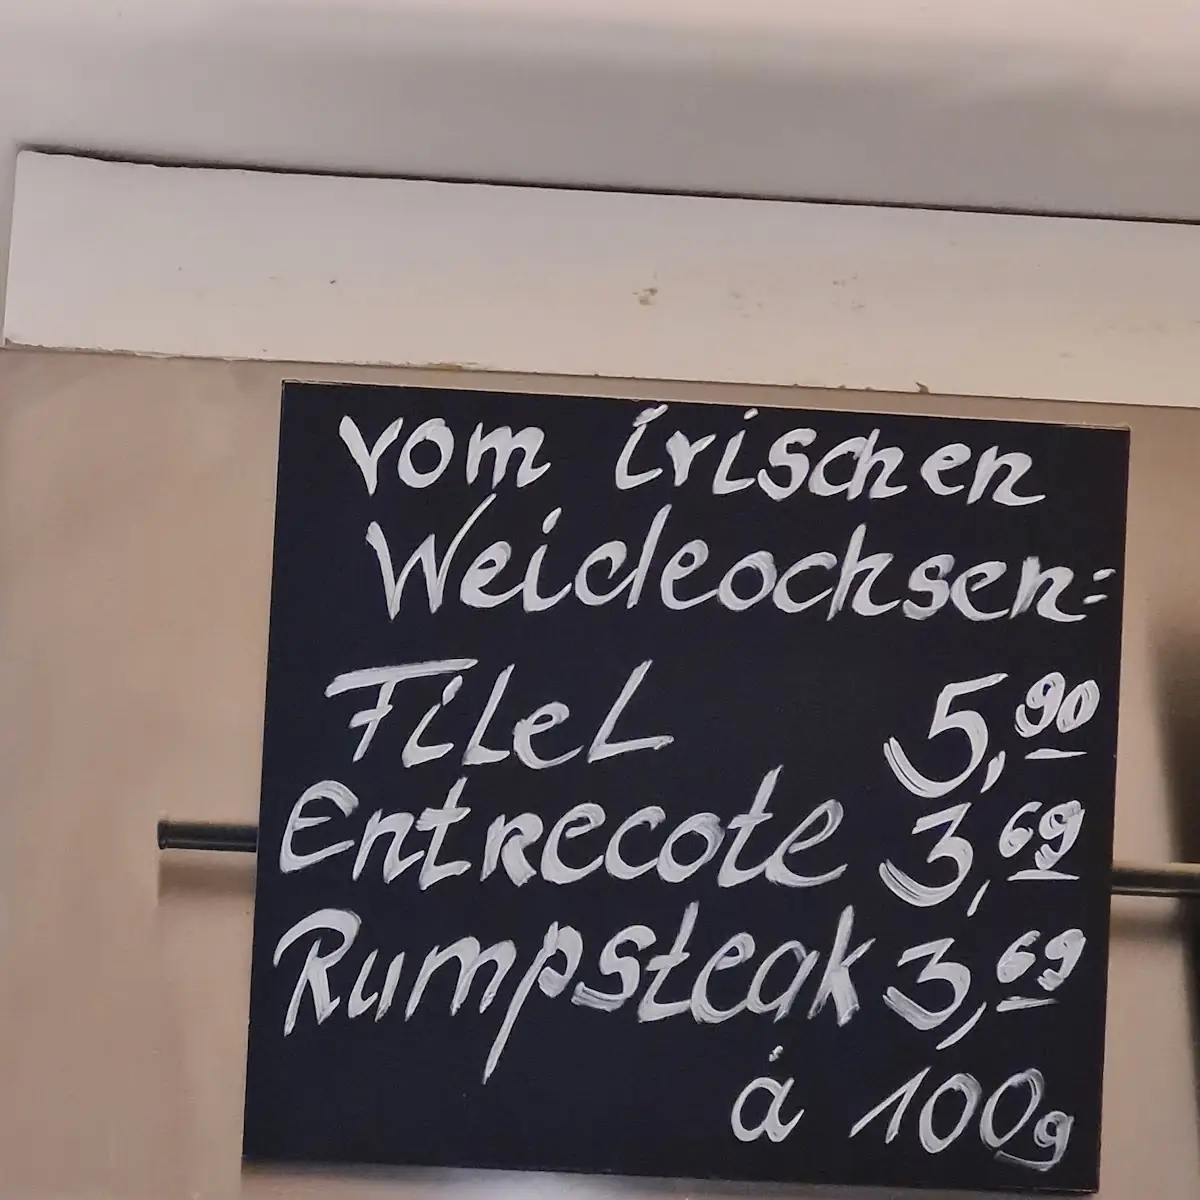 vom irischen
Weideochsen:
Filel 5,90
Entrecote 3,69
Rumpsteak 3,69
à 100g